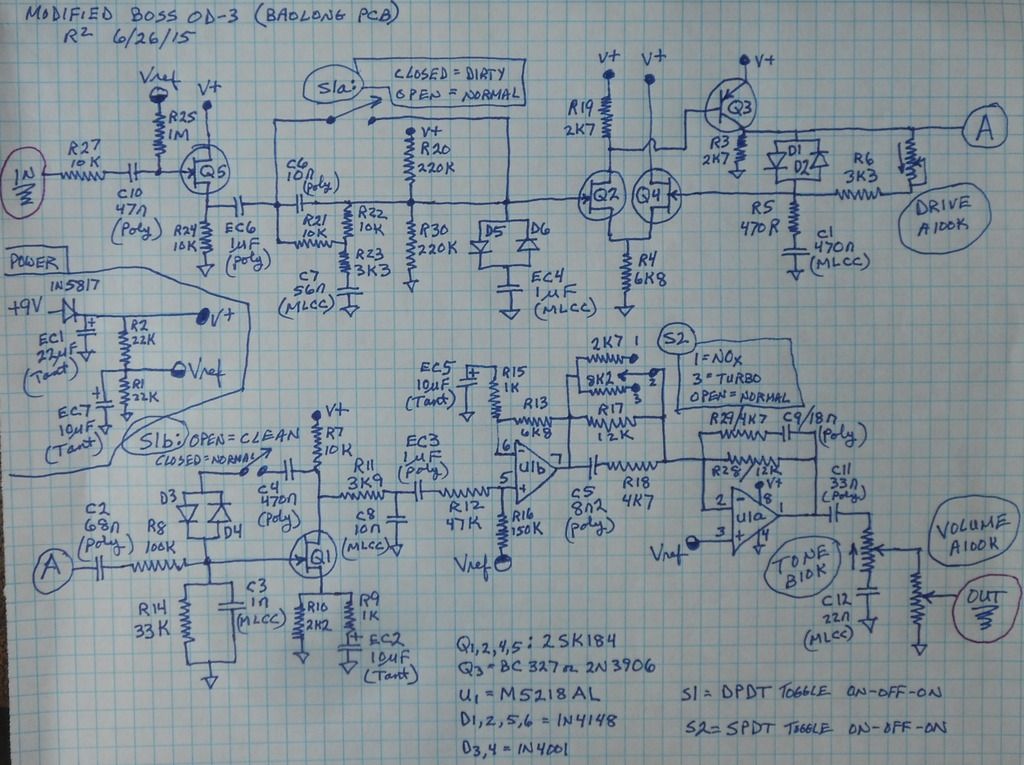 MODIFIED BOSS OD-3 (BAOLONG PCB)
R² 6/26/15
S1a:
CLOSED = DIRTY
OPEN = NORMAL
Vref
V+
R25
1M
R27
10K
IN
C10
47n
(Poly)
Q5
R24
10K
EC6
1µF
(poly)
C6
10n
(poly)
R21
10K
R22
10K
R23
3K3
C7
56n
(MLCC)
V+
R20
220K
R30
220K
D5
D6
EC4
1µF
(MLCC)
V+
V+
R19
2K7
Q2
Q4
R4
6K8
V+
Q3
R3
2K7
D1
D2
R5
470R
C1
470n
(MLCC)
R6
3K3
A
DRIVE
A100K
POWER
1N5817
+9V
V+
EC1
22µF
(Tant)
R2
22K
Vref
R1
22K
EC7
10µF
(Tant)
S1b:
OPEN = CLEAN
CLOSED = NORMAL
D3
D4
C4
470n
(poly)
V+
R7
10K
C2
68n
(Poly)
R8
100K
A
R14
33K
C3
1n
(MLCC)
Q1
R10
2K2
R9
1K
EC2
10µF
(Tant)
R11
3K9
C8
10n
(MLCC)
EC3
1µF
(Poly)
R12
47K
EC5
10µF
(Tant)
R15
1K
R13
6K8
6
5
7
U1b
R16
150K
Vref
C5
8n2
(poly)
R18
4K7
2K7
1
8K2
2
3
R17
12K
S2
1 = NOX
3 = TURBO
OPEN = NORMAL
R29/4K7
C9/18n
(poly)
R28/12K
V+
2
8
1
U1a
3
4
Vref
C11
33n
(Poly)
TONE
B10K
C12
22n
(MLCC)
VOLUME
A100K
OUT
Q1,2,4,5: 2SK184
Q3 = BC 327 or 2N3906
U1 = M5218AL
D1,2,5,6 = 1N4148
D3,4 = 1N4001
S1 = DPDT TOGGLE ON-OFF-ON
S2 = SPDT TOGGLE ON-OFF-ON